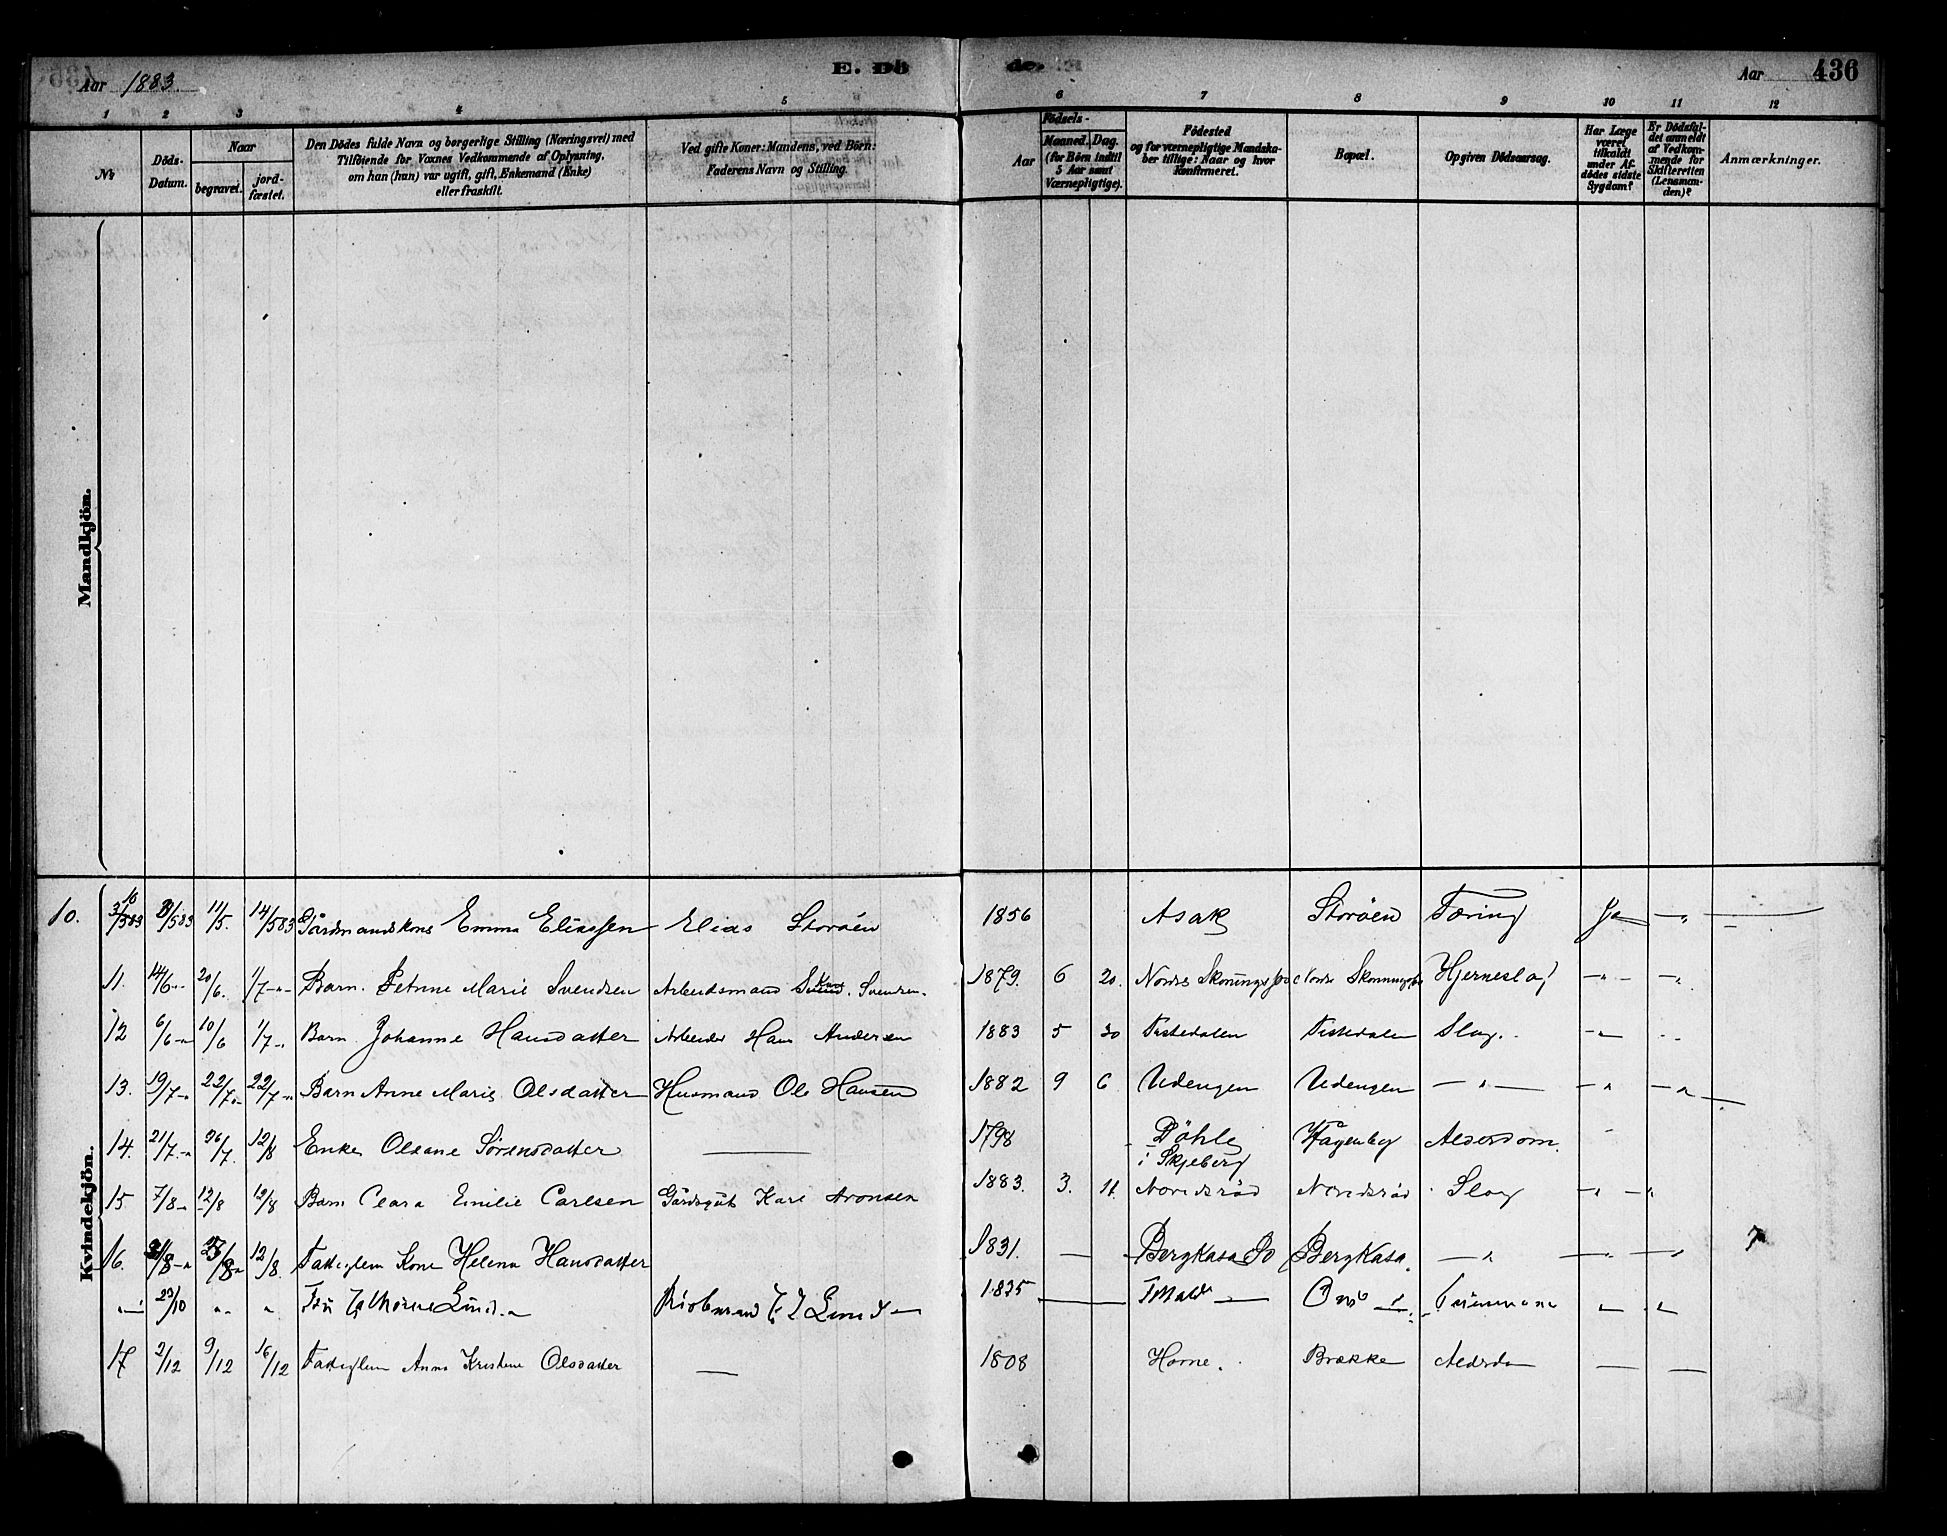 Aar 1883. E. Dö de. Aar 436
1 2 3 4 5 6 7 8 9 10 11 12
No
Döds-Datum.
Naar
begravet.
jord-fæstet.
Den Dödes fulde Navn og borgerlige Stilling (Næringsvei) med
Tilföiende for Voxnes Vedkommende af Oplysning,
om han (hun) var ugift, gift, Enkemand (Enke)
eller fraskilt.
Ved gifte Koner: Mandens, ved Börn:
Faderens Navn og Stilling.
Födsels-
Aar
Maaned. Dag.
(for Börn indtil
5 Aar samt
Værnepligtige).
Födested
og for værnepligtige Mandska-
ber tillige: Naar og hvor
konfirmeret.
Bopæl.
Opgiven Dödsaarsag.
Har Læge
været
tilkaldt
under Af-
dödes sidste
Sygdom?
Er Dödsfal-
det anmeldt
af Vedkom-
mende for
Skifteretten
(Lensman-
den)?
Anmærkninger.
Mandkjön.
Kvindekjön.
10. 11/5. 14/5 83 Gårdmandskone Emma Eliassen Elias Storöen 1856 Asak Storöen Tæring Ja — " —
11. 14/6 -"- 20/6. 1/7 -"- Barn. Petrine Marie Svendsen Arbeidsmand Svendsen. 1879. 6 20. Nordre Nordre Hjerneslag — " — — "
12 6/6 -"- 10/6 1/7 -"- Barn Johanne Hansdatter Arbeider Hans Andersen 1883 5 30 Tistedalen Tistedalen Slag. — " —
13. 19/7 -"- 22/7 -"- 22/7 -"- Barn Anne Marie Olsdatter Husmand Ole Hansen 1882 9 6 Udengen Udengen — " — — " — "
14. 21/7 -"- 26/7. 12/8 Enke Oleane Sörensdatter — 1798 Döhle
i Skjeberg Alderdom.
15 7/8 -"- 12/8 12/8 Barn Clara Emilie Carlsen Gårdsgut Karl Aronsen 1883. 3. 11. Noredsröd Noredsröd Slag — " — "
16. 12/8. Fattiglem Kone Helena Hansdatter 1831. — Bergkasa Bergkasa. — " — " — "
-"- 23/10 " " Fru Lund Lund 1835 —
17 2/12 9/12 16/12 Fattiglem Anna Kristine Olsdatter — 1808 Horne. Brække — —